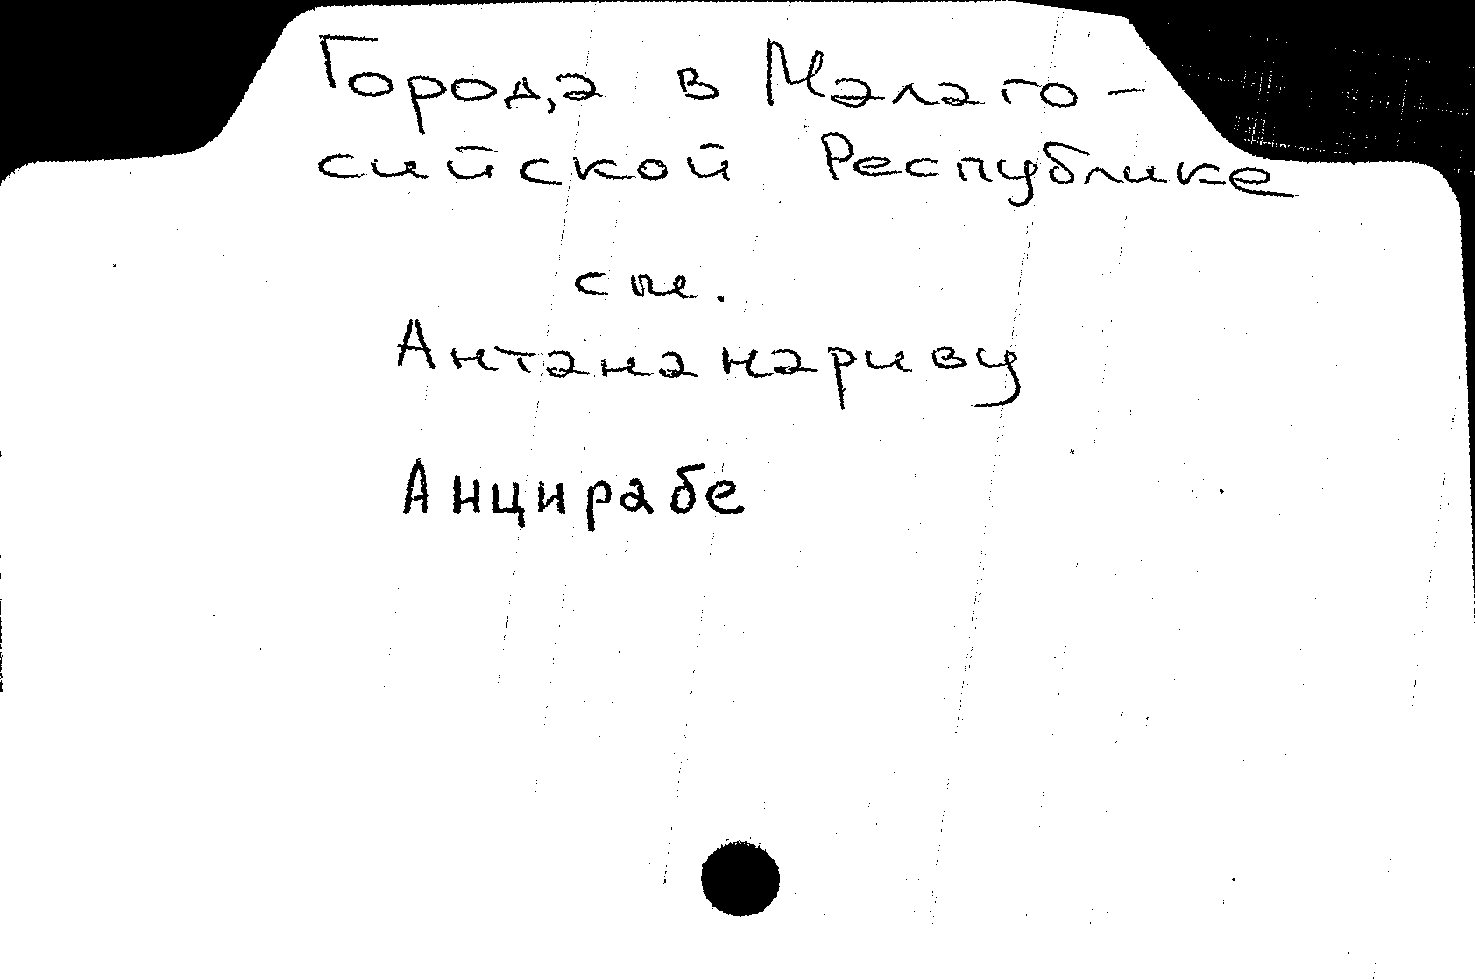 Города в Малаго-
сийской Республике
см.
Антананариву
Анцирабе